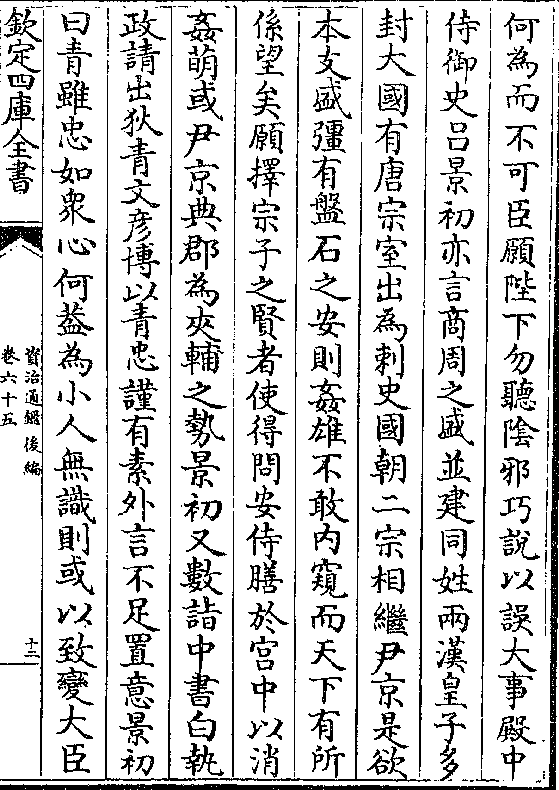 何為而不可臣願陛下勿聽陰邪巧説以誤大事殿中
侍御史吕景初亦言商周之盛並建同姓兩漢皇子多
封大國有唐宗室出為刺史國朝二宗相繼尹京是欲
本支盛彊有盤石之安則姦雄不敢内窺而天下有所
係望矣願擇宗子之賢者使得問安侍膳於宫中以消
姦萌或尹京典郡為夾輔之勢景初又數詣中書白執
政請出狄青文彦博以青忠謹有素外言不足置意景初
曰青雖忠如衆心何葢為小人無識則或以致變大臣
欽定四庫全書
資治通鑑後編
卷六十五
十三